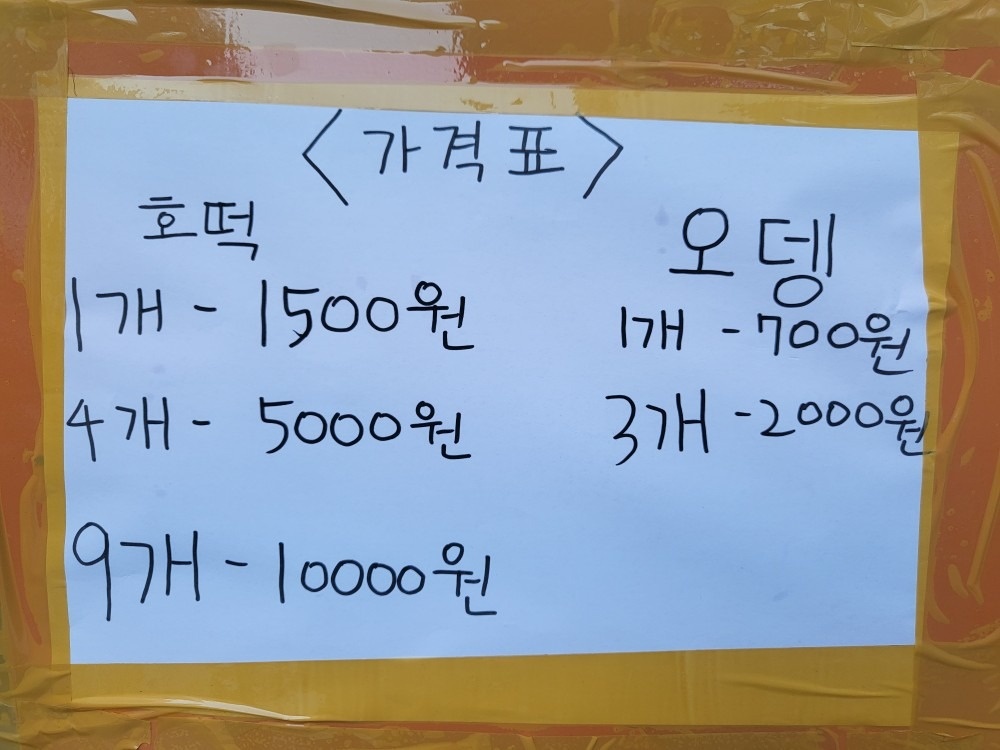 <가격표>
호떡
1개 - 1500원
4개 - 5000원
9개 - 10000원
오뎅
1개 - 700원
3개 - 2000원